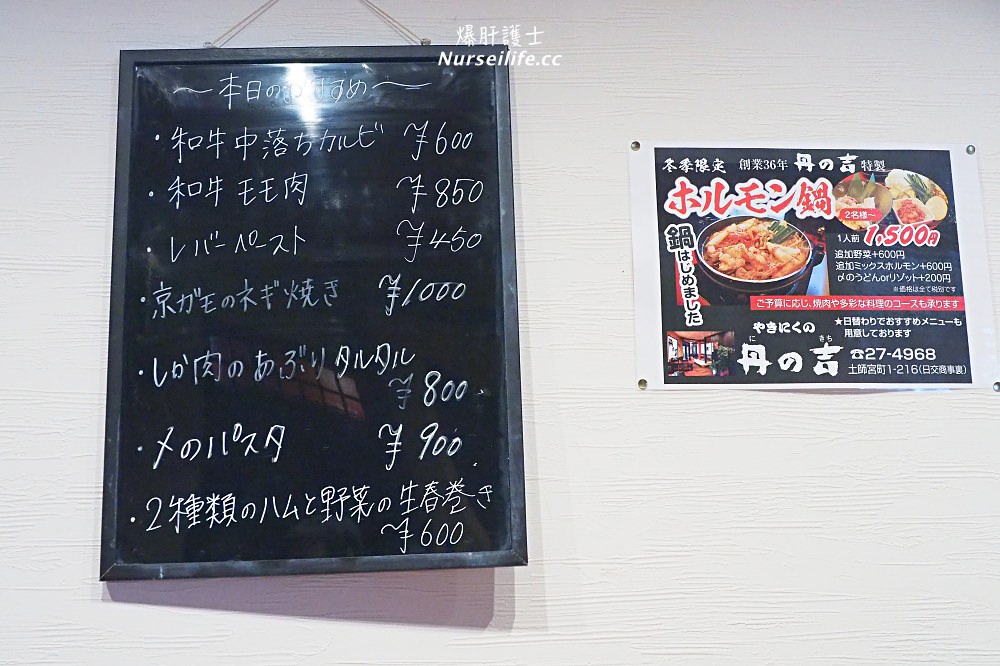 爆肝護士
Nurseilife.cc
～本日のおすすめ～
・和牛中落ちカルビ ¥600
・和牛モモ肉 ¥850
・レバーペースト ¥450
・京ガモのネギ焼き ¥1000
・しか肉のあぶりタルタル
¥800
・〆のパスタ ¥900
・2種類のハムと野菜の生春巻き
¥600
冬季限定 創業36年 丹の吉 特製
ホルモン鍋
鍋はじめました
2名様～
1人前 1,500円
追加野菜+600円
追加ミックスホルモン+600円
〆のうどんorリゾット+200円
※価格は全て税別です
ご予算に応じ、焼肉や多彩な料理のコースも承ります
やきにくの
に きち
丹の吉
★日替わりでおすすめメニューも
用意しております
☎27-4968
土師宮町1-216(日交商事裏)